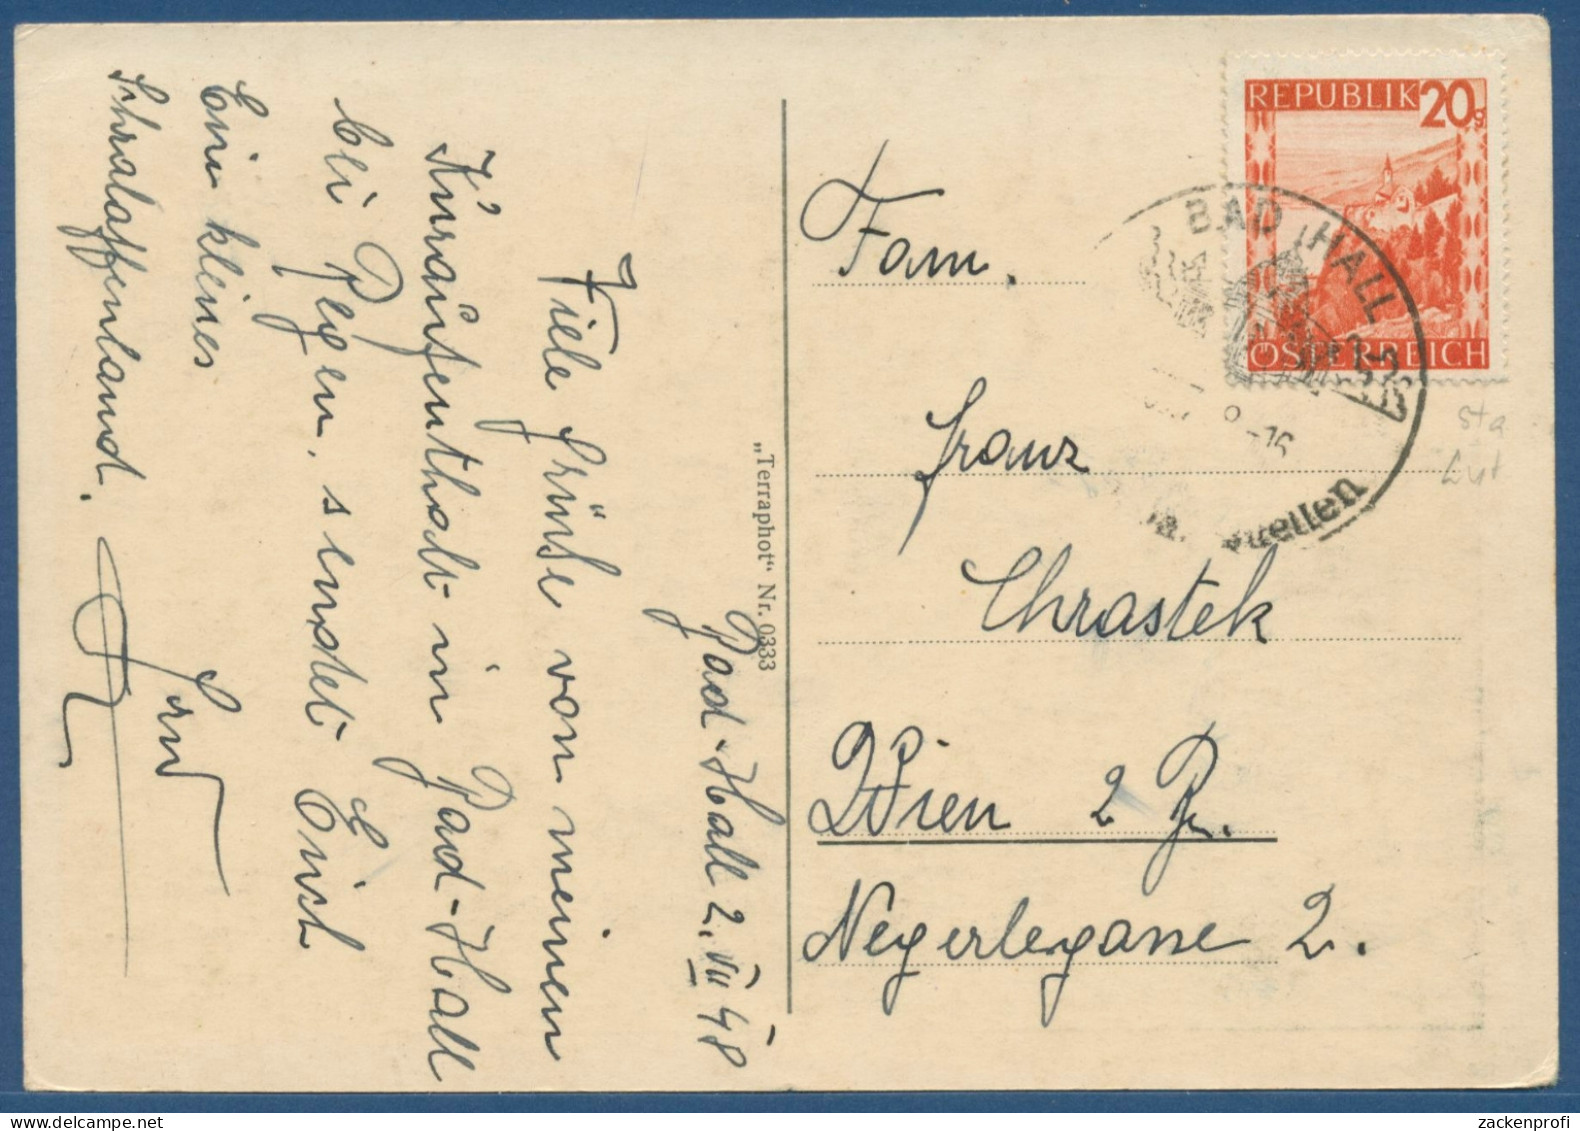 Bad-Hall 2. VII 48
Viele Grüße von meinem
Kuraufenthalt in Bad-Hall
bei Regen, sendet Euch
Ein kleines
Schralaffenland.
"Terraphot" Nr. 0333
REPUBLIK 20g
ÖSTERREICH
BAD HALL
-16
quellen
Fam.
Franz
Chrastek
Wien 2 Bz.
Negerlegasse 2.
zackenprofi